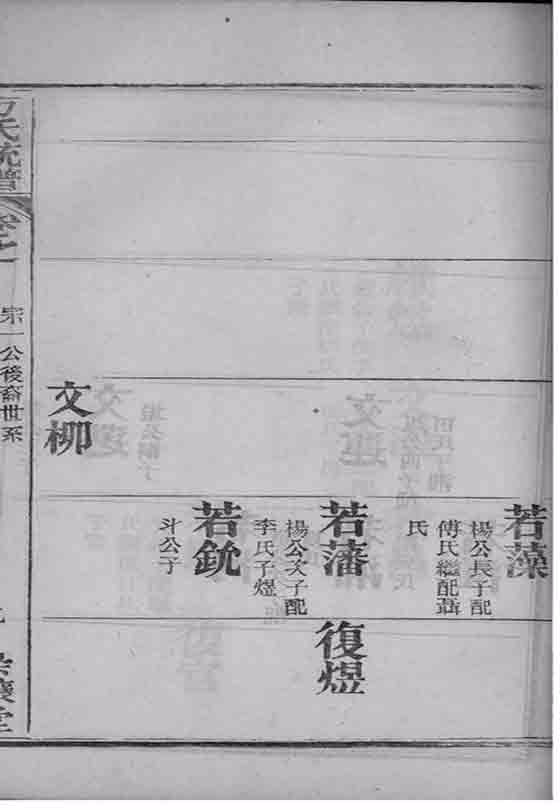 若藻
楊公長子配
傅氏繼配聶
氏
若藩
楊公次子配
李氏子煜
復煜
若銃
斗公子
文柳
氏統譜
卷之
宗一公後裔世系